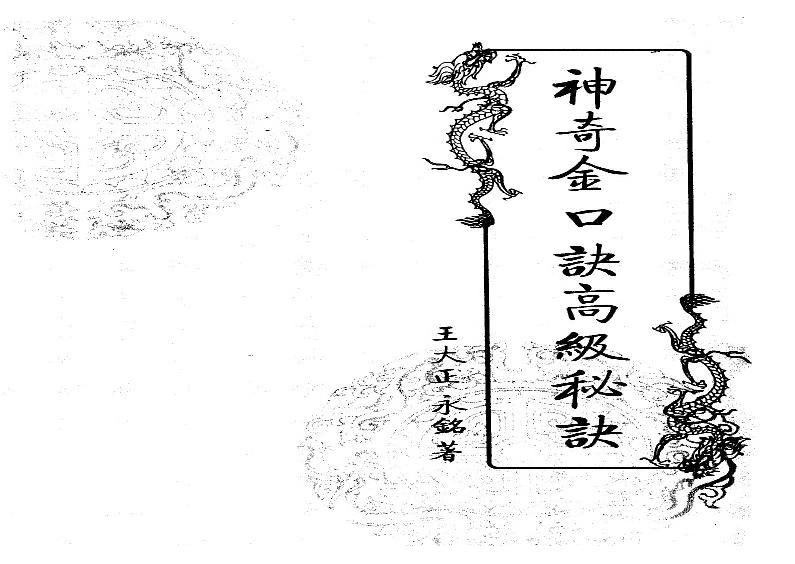 神奇金口訣高級秘訣
王大正永銘著